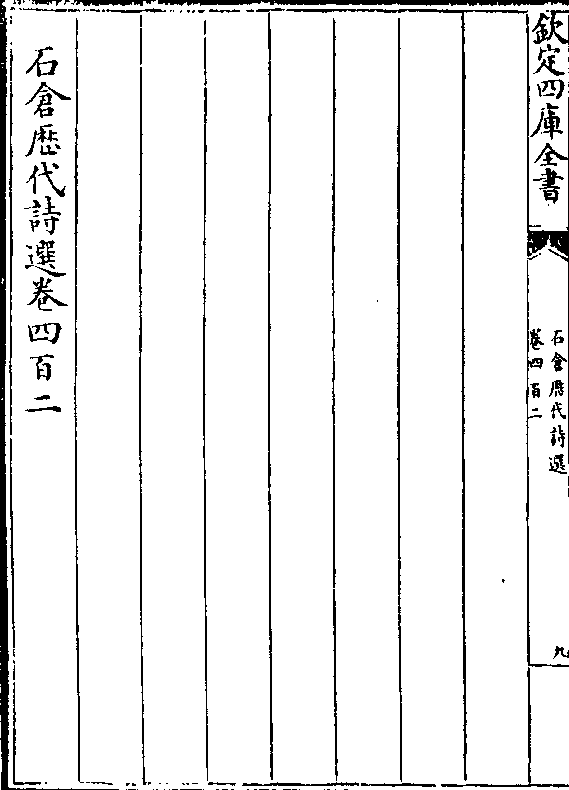 欽定四庫全書
石倉歷代詩選
卷四百二
九
石倉歷代詩選卷四百二